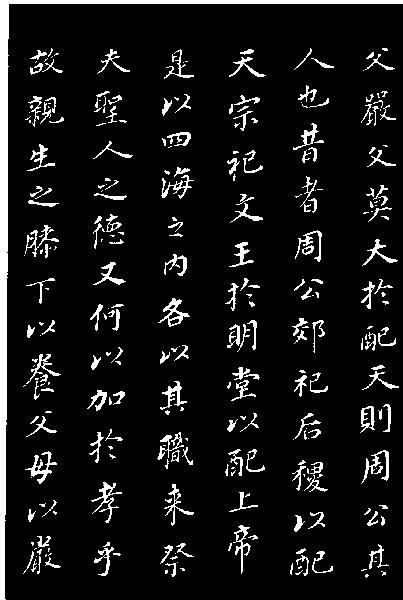 父嚴父莫大於配天則周公其
人也昔者周公郊祀后稷以配
天宗祀文王於明堂以配上帝
是以四海之内各以其職来祭
夫聖人之德又何以加於孝乎
故親生之膝下以養父母以嚴